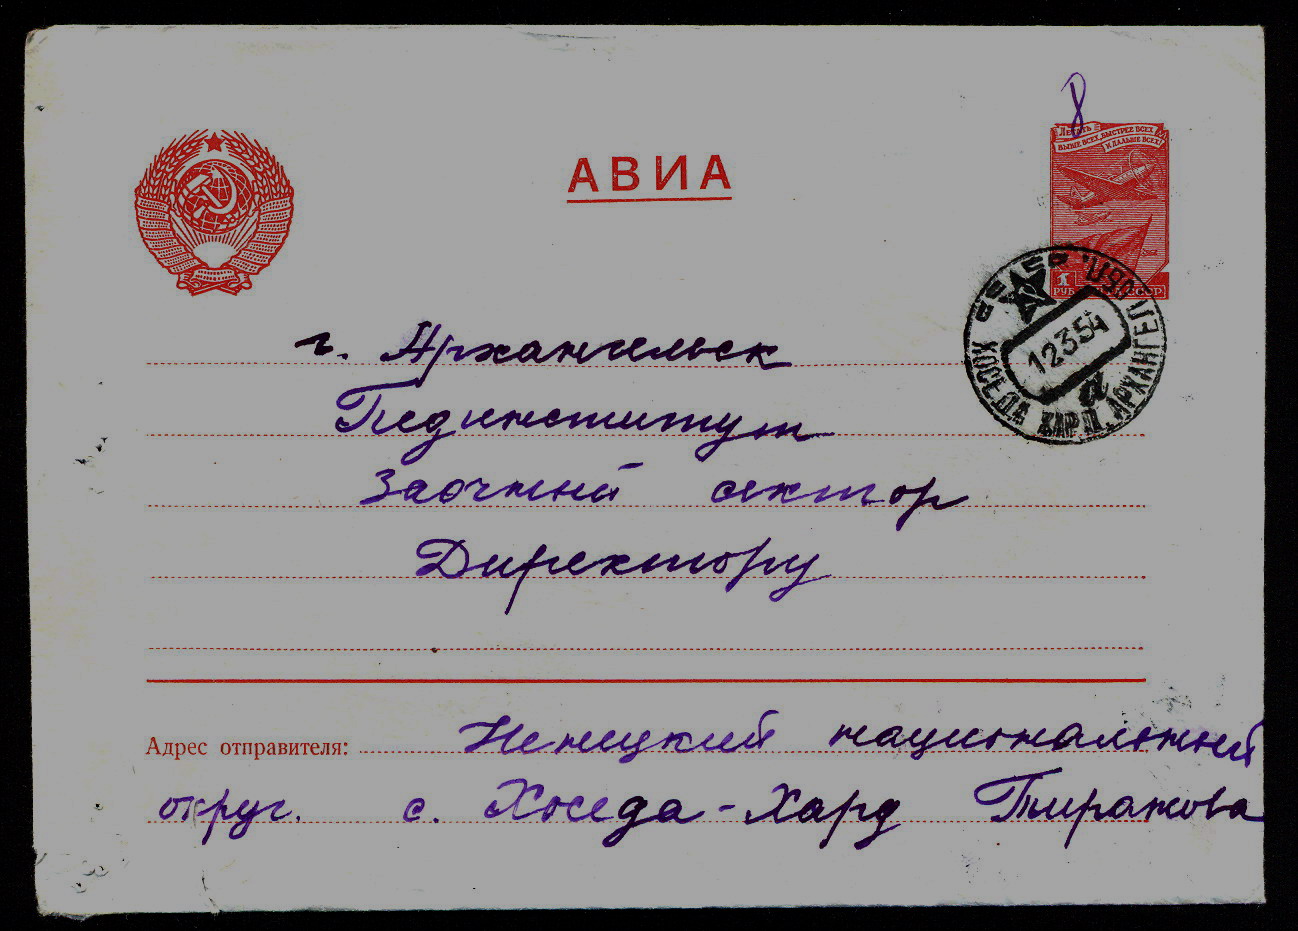 8
ЛЕТАТЬ
ВЫШЕ ВСЕХ, БЫСТРЕЕ ВСЕХ
И ДАЛЬШЕ ВСЕХ!
АВИА
1
РУБ
СССР
12354
а
ХОСЕДА ХАРД АРХАНГЕЛ
г. Архангельск
Пединститут
Заочный сектор
Директору
Адрес отправителя: Ненецкий национальный
округ. с. Хоседа-Хард